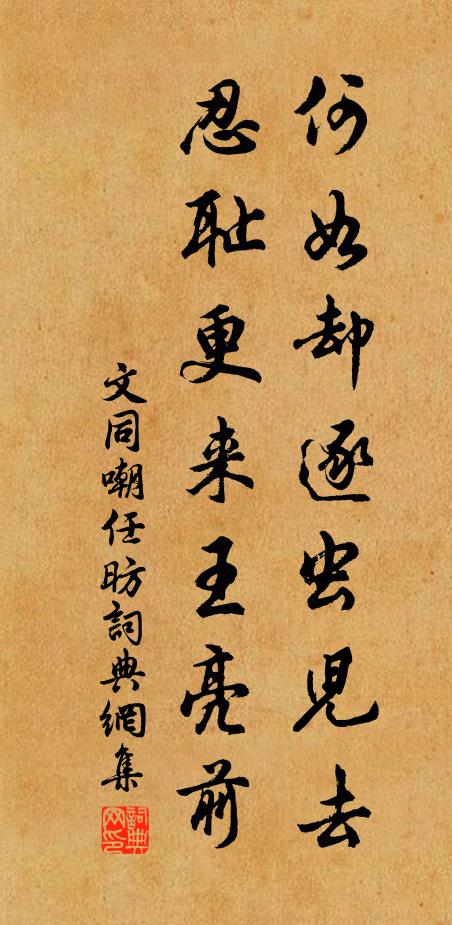 何如却逐虫児去
忍耻更来王亮前
文同嘲任昉詞典網集
詞典網印